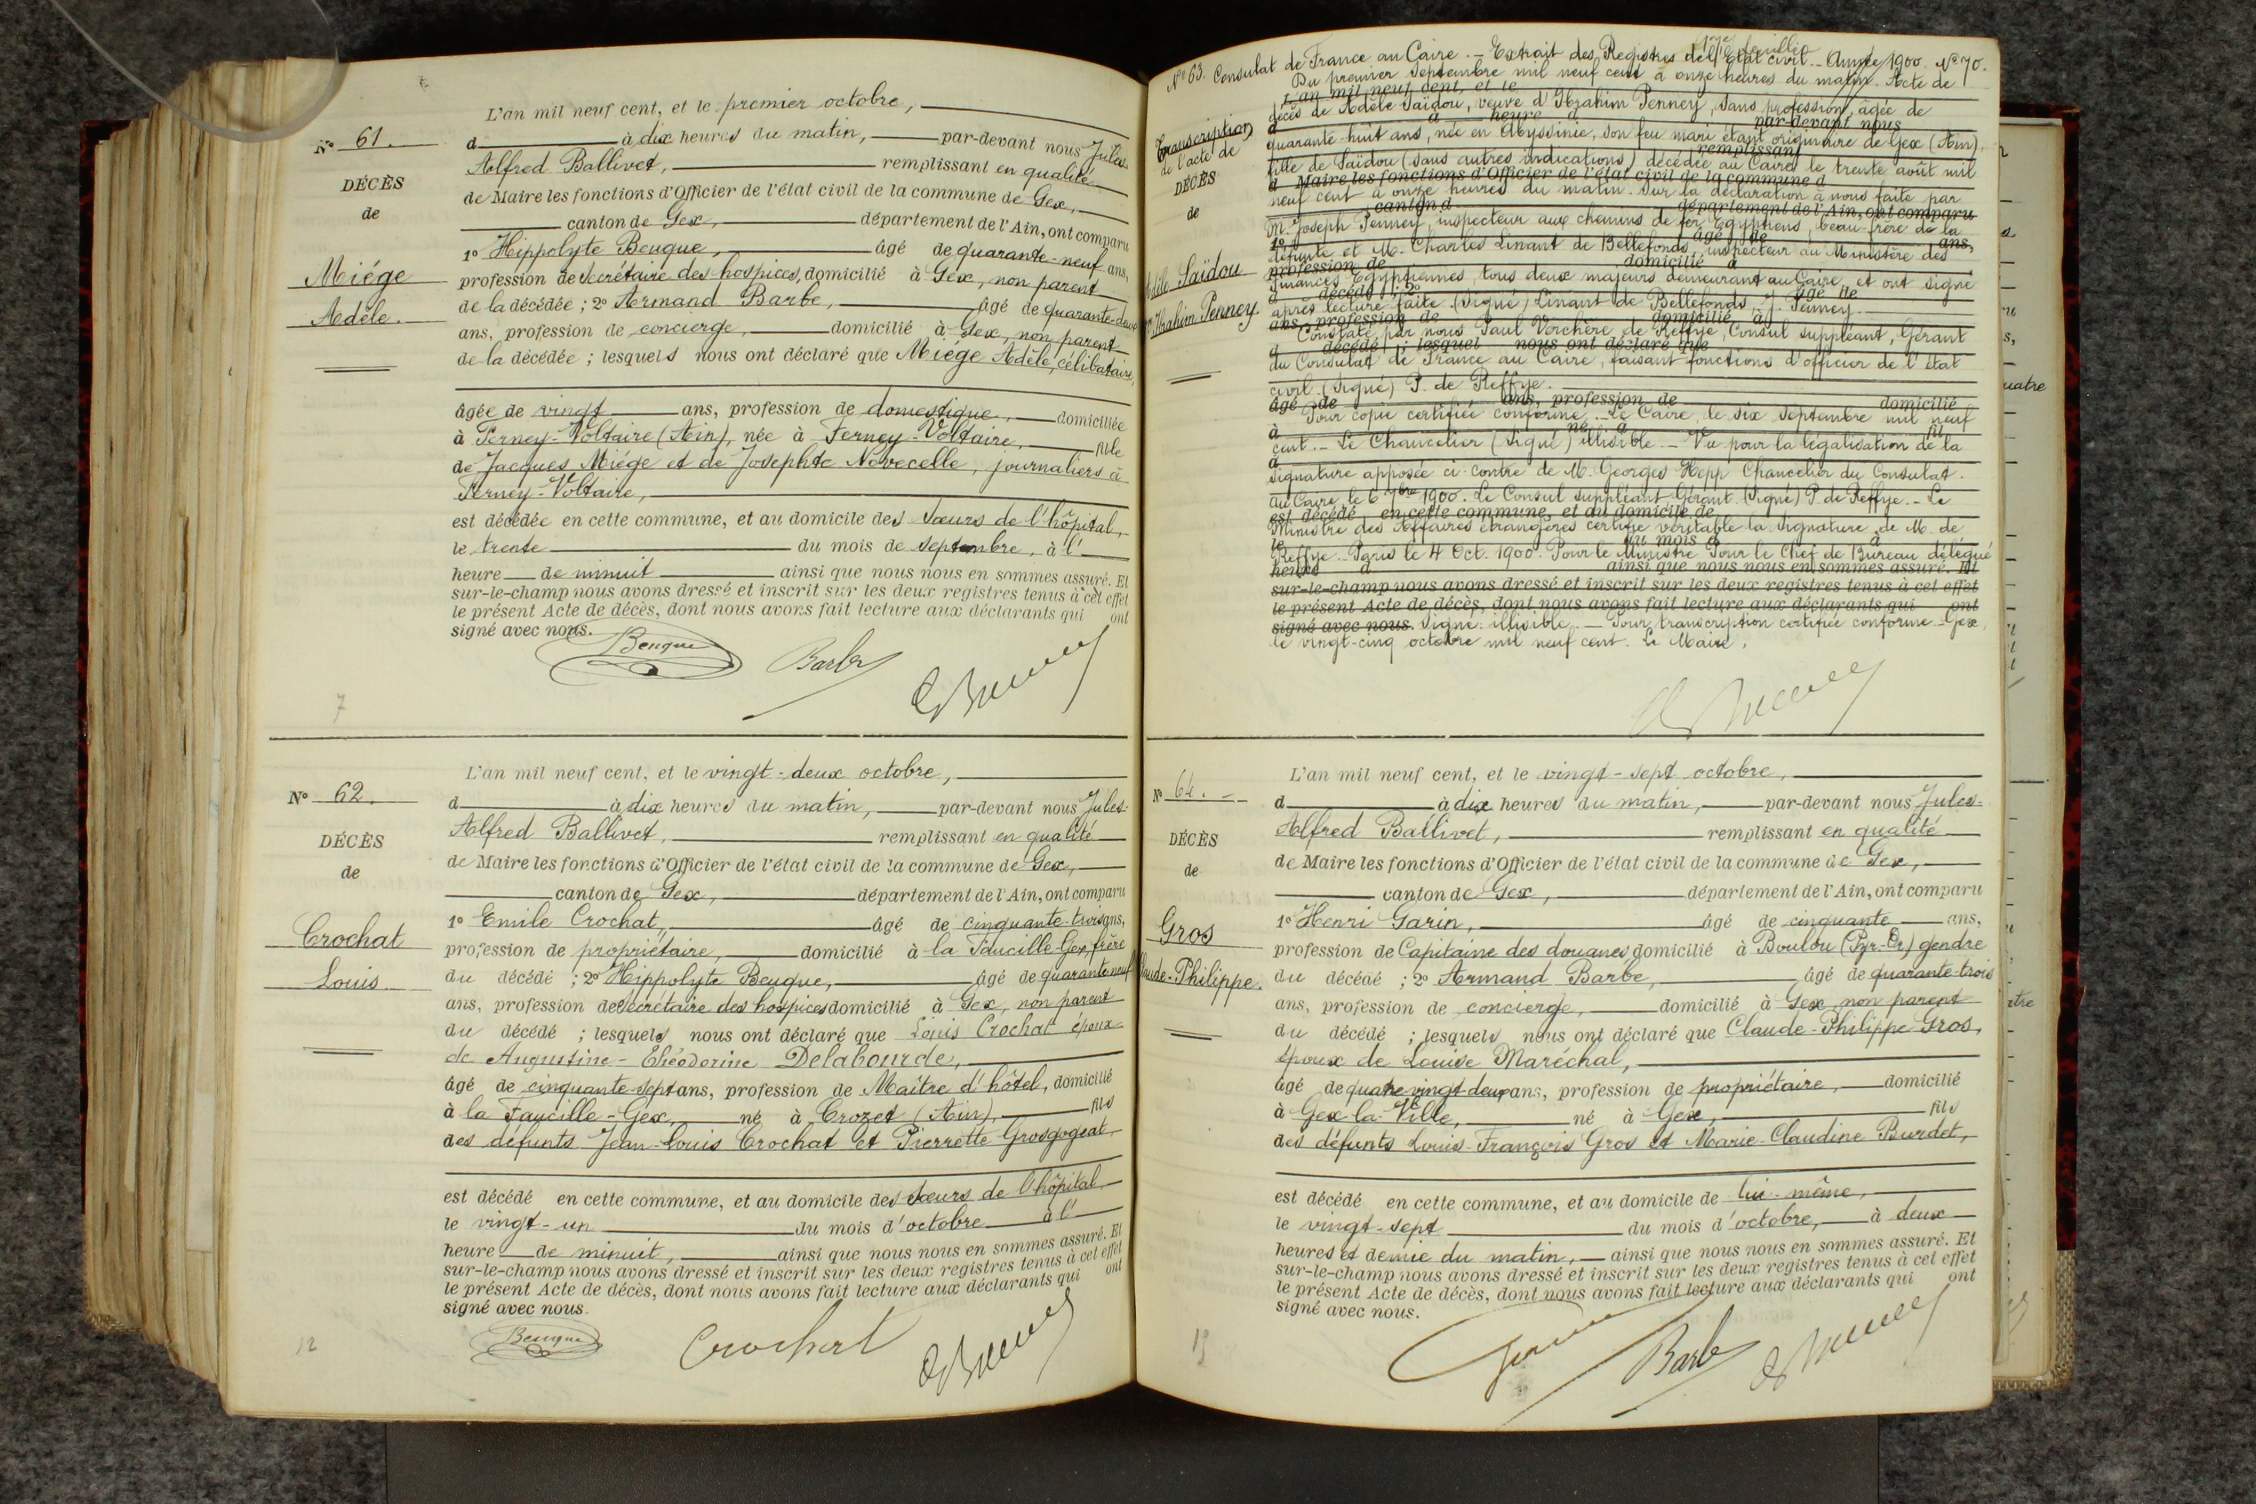 N° 61.
DÉCÈS
de
Miége
Adèle.
L'an mil neuf cent, et le premier octobre,
d à dix heures du matin, par-devant nous Jules-
Alfred Ballivet, remplissant en qualité
de Maire les fonctions d'Officier de l'état civil de la commune de Gex,
canton de Gex, département de l'Ain, ont comparu
1° Hippolyte Beuque, âgé de quarante-neuf ans,
profession de secrétaire des hospices, domicilié à Gex, non parent
de la décédée ; 2° Armand Barbe, âgé de quarante-deux
ans, profession de concierge, domicilié à Gex, non parent
de la décédée ; lesquels nous ont déclaré que Miége Adèle, célibataire,
âgée de vingt ans, profession de domestique, domiciliée
à Ferney-Voltaire (Ain), née à Ferney-Voltaire, fille
de Jacques Miége et de Josephte Novecelle, journaliers à
Ferney-Voltaire,
est décédée en cette commune, et au domicile des sœurs de l'hôpital,
le trente du mois de septembre, à l'
heure de minuit ainsi que nous nous en sommes assuré. Et
sur-le-champ nous avons dressé et inscrit sur les deux registres tenus à cet effet
le présent Acte de décès, dont nous avons fait lecture aux déclarants qui ont
signé avec nous.
Beuque Barbe
7
N° 62.
DÉCÈS
de
Crochat
Louis
L'an mil neuf cent, et le vingt-deux octobre,
d à dix heures du matin, par-devant nous Jules-
Alfred Ballivet, remplissant en qualité
de Maire les fonctions d'Officier de l'état civil de la commune de Gex,
canton de Gex, département de l'Ain, ont comparu
1° Emile Crochat, âgé de cinquante-trois ans,
profession de propriétaire, domicilié à la Faucille-Gex, frère
du décédé ; 2° Hippolyte Beuque, âgé de quarante-neuf
ans, profession de secrétaire des hospices domicilié à Gex, non parent
du décédé ; lesquels nous ont déclaré que Louis Crochat époux
de Augustine-Théodorine Delabourde,
âgé de cinquante-sept ans, profession de Maître d'hôtel, domicilié
à la Faucille-Gex, né à Crozet (Ain), fils
des défunts Jean-Louis Crochat et Pierrette Grosgogeat
est décédé en cette commune, et au domicile des sœurs de l'hôpital
le vingt-un du mois d'octobre à l'
heure de minuit, ainsi que nous nous en sommes assuré. Et
sur-le-champ nous avons dressé et inscrit sur les deux registres tenus à cet effet
le présent Acte de décès, dont nous avons fait lecture aux déclarants qui ont
signé avec nous.
Beuque Crochat
12
N° 63. Consulat de France au Caire. - Extrait des Registres de l'Etat civil - Année 1900. N° 70.
Transcription
de l'acte de
DÉCÈS
de
Adèle Saïdou
Ve Ibrahim Penney.
Du premier Septembre mil neuf cent à onze heures du matin. Acte de
L'an mil neuf cent, et le
décès de Adèle Saïdou, veuve d'Ibrahim Penney, sans profession, âgée de
d à heure d par-devant nous
quarante-huit ans, née en Abyssinie, son feu mari étant originaire de Gex (Ain),
remplissant
fille de Saïdou (sans autres indications) décédée au Caire le trente août mil
d Maire les fonctions d'Officier de l'état civil de la commune d
neuf cent à onze heures du matin. Sur la déclaration à nous faite par
canton d département de l'Ain, ont comparu
M. Joseph Penney, inspecteur aux chemins de fer Egyptiens, beau-frère de la
1° âgé de ans,
défunte et M. Charles Linant de Bellefonds, inspecteur au Ministère des
profession de domicilié à
Finances Egyptiennes, tous deux majeurs demeurant au Caire, et ont signé
d décédé ; 2° âgé de
après lecture faite. (Signé) Linant de Bellefonds, J. Penney.
ans, profession de domicilié à
Constaté par nous Paul Verchère de Reffye, Consul suppléant, Gérant
d décédé ; lesquel nous ont déclaré que
du Consulat de France au Caire, faisant fonctions d'officier de l'état
civil. (Signé) P. de Reffye.
âgé de ans, profession de domicilié
Pour copie certifiée conforme. Le Caire, le six septembre mil neuf
à né à fil
cent. - Le Chancelier (Signé) illisible. - Vu pour la légalisation de la
d
signature apposée ci-contre de M. Georges Hepp Chancelier du Consulat.
au Caire, le 6 7bre 1900. Le Consul suppléant Gérant. (Signé) P. de Reffye. - Le
est décédé en cette commune, et au domicile de
Ministre des Affaires étrangères certifie véritable la signature de M. de
le du mois d à
Reffye. Paris le 4 Oct. 1900. Pour le Ministre Pour le Chef de Bureau délégué
heure d ainsi que nous nous en sommes assuré. Et
sur-le-champ nous avons dressé et inscrit sur les deux registres tenus à cet effet
le présent Acte de décès, dont nous avons fait lecture aux déclarants qui ont
signé avec nous. Signé : illisible. - Pour transcription certifiée conforme. - Gex,
le vingt-cinq octobre mil neuf cent. Le Maire,
N° 64.
DÉCÈS
de
Gros
Claude-Philippe.
L'an mil neuf cent, et le vingt-sept octobre,
d à dix heures du matin, par-devant nous Jules-
Alfred Ballivet, remplissant en qualité
de Maire les fonctions d'Officier de l'état civil de la commune de Gex,
canton de Gex, département de l'Ain, ont comparu
1° Henri Garin, âgé de cinquante ans,
profession de Capitaine des douanes domicilié à Boulou (Pyr-Or) gendre
du décédé ; 2° Armand Barbe, âgé de quarante-trois
ans, profession de concierge, domicilié à Gex non parent
du décédé ; lesquels nous ont déclaré que Claude-Philippe Gros,
époux de Louise Maréchal,
âgé de quatre vingt-deux ans, profession de propriétaire, domicilié
à Gex-la-Ville, né à Gex, fils
des défunts Louis-François Gros et Marie-Claudine Burdet,
est décédé en cette commune, et au domicile de lui-même,
le vingt-sept du mois d'octobre, à deux
heures et demie du matin, ainsi que nous nous en sommes assuré. Et
sur-le-champ nous avons dressé et inscrit sur les deux registres tenus à cet effet
le présent Acte de décès, dont nous avons fait lecture aux déclarants qui ont
signé avec nous.
Barbe